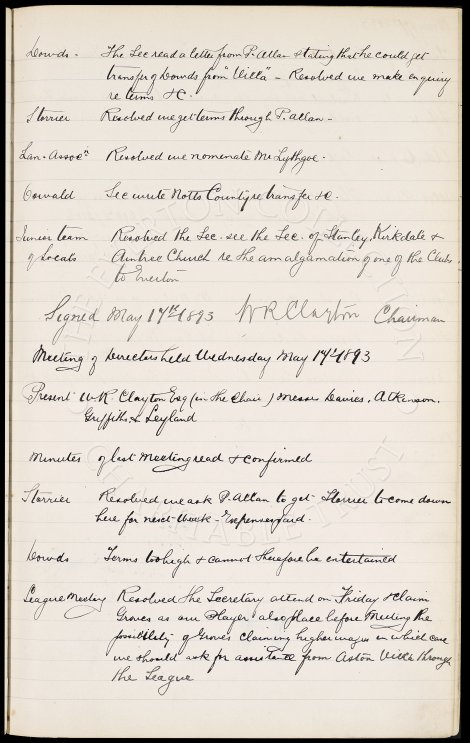 Dowds - The Sec read a letter from P. Allan stating that he could get
transfer of Dowds from "Villa" - Resolved we make enquiry
re terms &c.
Storrier Resolved we get terms through P. Allan -
Lan. Assocn Resolved we nominate Mr Lythgoe.
Oswald Sec write Notts County re transfer &c.
Junior team Resolved the Sec. see the Sec. of Stanley, Kirkdale &
of Locals Aintree Church re the amalgamation of one of the Clubs
to Everton
Signed May 17th 1893 WR Clayton Chairman
Meeting of Directors held Wednesday May 17th 1893
Present W.R. Clayton Esq (in the Chair) Messrs Davies, Atkinson,
Griffiths & Leyland
Minutes of last Meeting read & confirmed
Storrier Resolved we ask P. Allan to get Storrier to come down
here for next week - Expenses paid.
Dowds Terms too high & cannot therefore be entertained
League Meeting Resolved the Secretary attend on Friday & claim
Groves as our player. also place before Meeting the
possibility of Groves claiming higher wages in which case
we should ask for assistance from Aston Villa through
the League
THE EVERTON COLLECTION
CHARITABLE TRUST